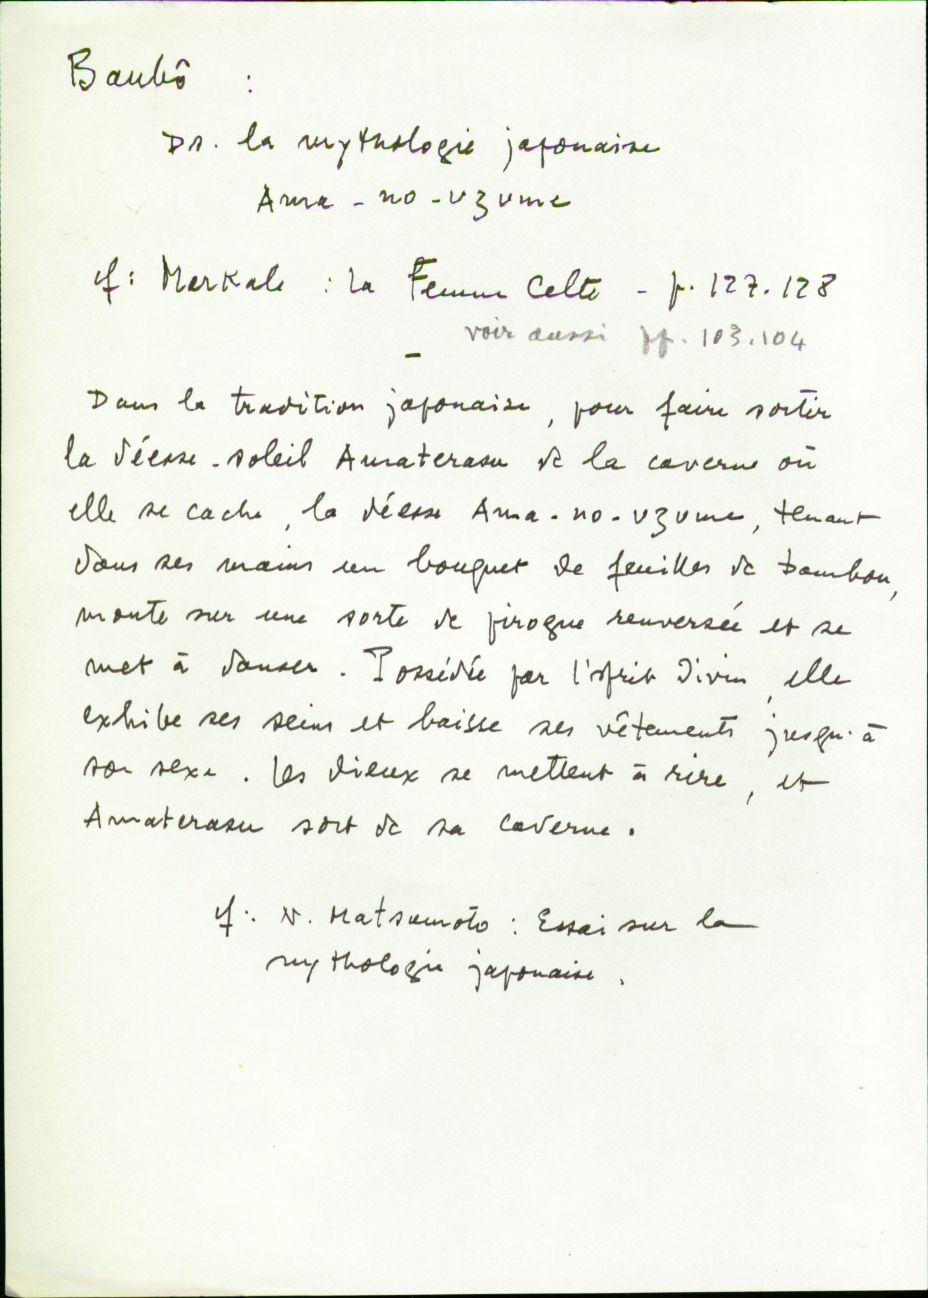 Baubô :
Ds. la mythologie japonaise
Ama-no-uzume
cf: Markale : la Femme Celte - p. 127.128
voir aussi pp. 103.104
-
Dans la tradition japonaise, pour faire sortir
la déesse-soleil Amaterasu de la caverne où
elle se cache, la déesse Ama-no-uzume, tenant
dans ses mains un bouquet de feuilles de bambou,
monte sur une sorte de pirogue renversée et se
met à danser. Possédée par l'esprit divin, elle
exhibe ses seins et baisse ses vêtements jusqu'à
son sexe. Les dieux se mettent à rire, et
Amaterasu sort de sa caverne.
cf: N. Matsumoto : Essai sur la
mythologie japonaise.